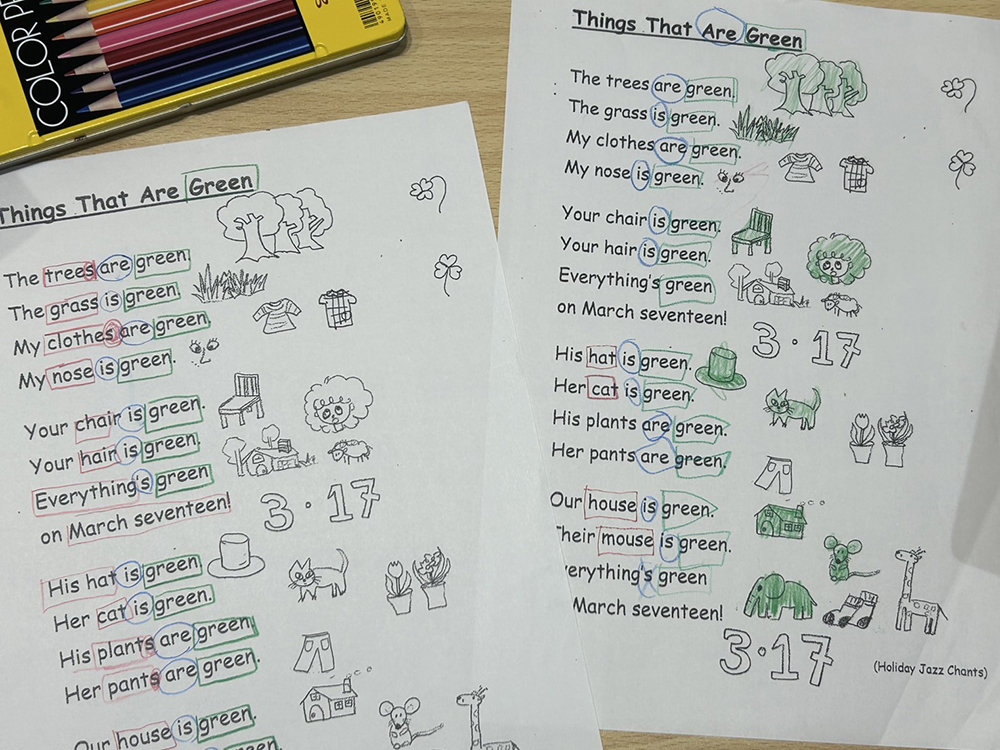 COLOR P
MADE
Things That Are Green
The trees are green.
The grass is green.
My clothes are green.
My nose is green.
Your chair is green.
Your hair is green.
Everything's green
on March seventeen!
3・17
His hat is green.
Her cat is green.
His plants are green.
Her pants are green.
Our house is green.
green.
Things That Are Green
The trees are green.
The grass is green.
My clothes are green.
My nose is green.
Your chair is green.
Your hair is green.
Everything's green
on March seventeen!
3・17
His hat is green.
Her cat is green.
His plants are green.
Her pants are green.
Our house is green.
Their mouse is green.
verything's green
March seventeen!
3・17
(Holiday Jazz Chants)